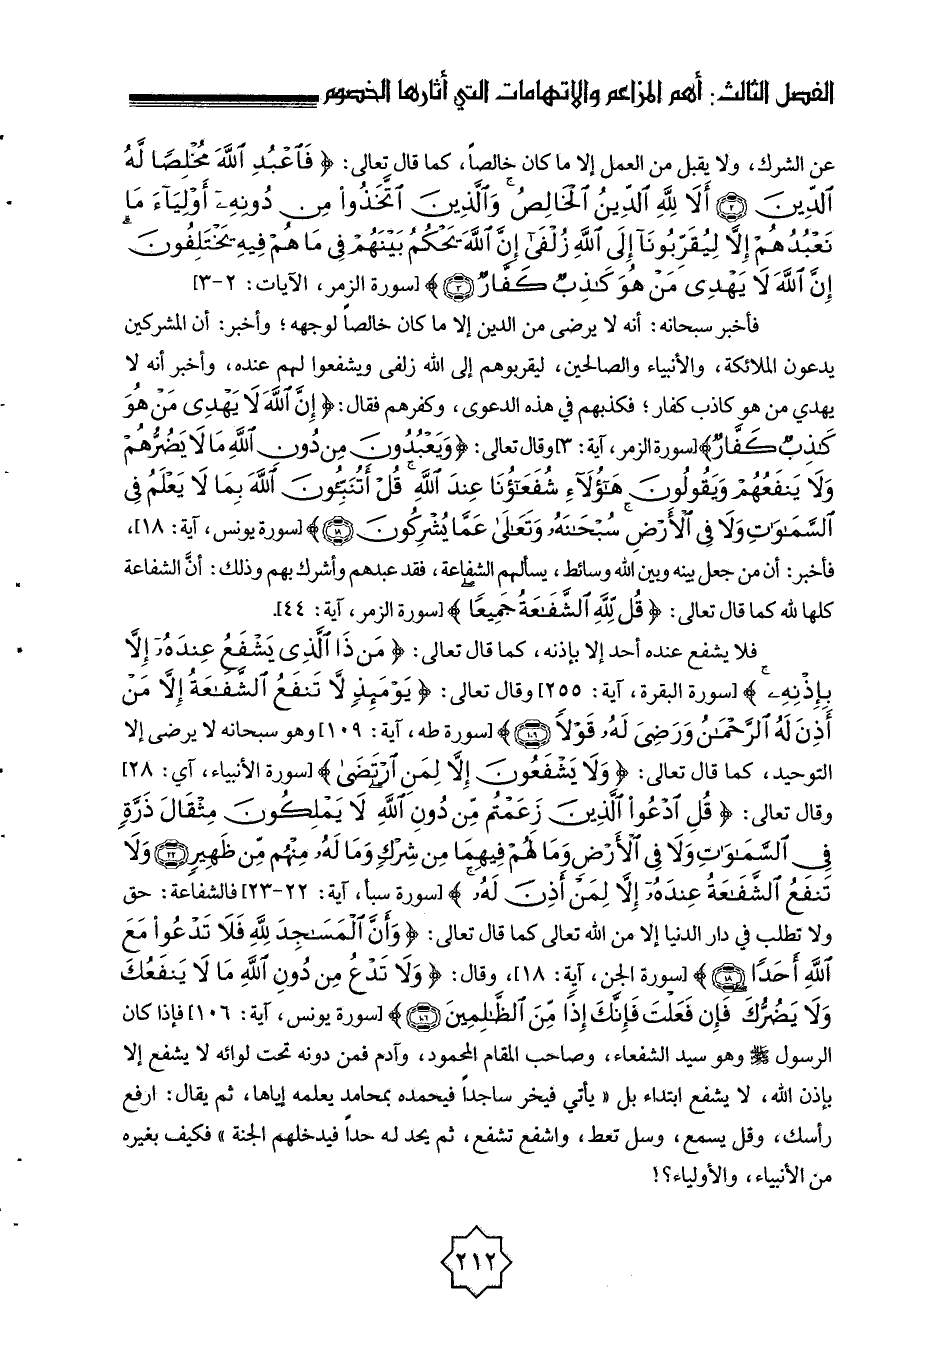 الفصل الثالث: أهم المزاعم والاتهامات التي أثارها الخصوم
عن الشرك، ولا يقبل من العمل إلا ما كان خالصاً، كما قال تعالى: ﴿ فَٱعۡبُدِ ٱللَّهَ مُخۡلِصٗا لَّهُ
ٱلدِّينَ ٢ أَلَا لِلَّهِ ٱلدِّينُ ٱلۡخَالِصُۚ وَٱلَّذِينَ ٱتَّخَذُواْ مِن دُونِهِۦٓ أَوۡلِيَآءَ مَا
نَعۡبُدُهُمۡ إِلَّا لِيُقَرِّبُونَآ إِلَى ٱللَّهِ زُلۡفَىٰٓ إِنَّ ٱللَّهَ يَحۡكُمُ بَيۡنَهُمۡ فِي مَا هُمۡ فِيهِ يَخۡتَلِفُونَۗ
إِنَّ ٱللَّهَ لَا يَهۡدِي مَنۡ هُوَ كَٰذِبٞ كَفَّارٞ ٣ ﴾ [سورة الزمر، الآيات: ٢-٣]
فأخبر سبحانه: أنه لا يرضى من الدين إلا ما كان خالصاً لوجهه؛ وأخبر: أن المشركين
يدعون الملائكة، والأنبياء والصالحين، ليقربوهم إلى الله زلفى ويشفعوا لهم عنده، وأخبر أنه لا
يهدي من هو كاذب كفار؛ فكذبهم في هذه الدعوى، وكفرهم فقال: ﴿ إِنَّ ٱللَّهَ لَا يَهۡدِي مَنۡ هُوَ
كَٰذِبٞ كَفَّارٞ﴾[سورة الزمر، آية: ٣] وقال تعالى: ﴿وَيَعۡبُدُونَ مِن دُونِ ٱللَّهِ مَا لَا يَضُرُّهُمۡ
وَلَا يَنفَعُهُمۡ وَيَقُولُونَ هَٰٓؤُلَآءِ شُفَعَٰٓؤُنَا عِندَ ٱللَّهِۚ قُلۡ أَتُنَبِّـُٔونَ ٱللَّهَ بِمَا لَا يَعۡلَمُ فِي
ٱلسَّمَٰوَٰتِ وَلَا فِي ٱلۡأَرۡضِۚ سُبۡحَٰنَهُۥ وَتَعَٰلَىٰ عَمَّا يُشۡرِكُونَ ١٨ ﴾ [سورة يونس، آية: ١٨]،
فأخبر: أن من جعل بينه وبين الله وسائط، يسألهم الشفاعة، فقد عبدهم وأشرك بهم وذلك: أنَّ الشفاعة
كلها لله كما قال تعالى: ﴿ قُل لِّلَّهِ ٱلشَّفَٰعَةُ جَمِيعٗا ﴾ [سورة الزمر، آية: ٤٤].
فلا يشفع عنده أحد إلا بإذنه، كما قال تعالى: ﴿ مَن ذَا ٱلَّذِي يَشۡفَعُ عِندَهُۥٓ إِلَّا
بِإِذۡنِهِۦۚ ﴾ [سورة البقرة، آية: ٢٥٥] وقال تعالى: ﴿ يَوۡمَئِذٖ لَّا تَنفَعُ ٱلشَّفَٰعَةُ إِلَّا مَنۡ
أَذِنَ لَهُ ٱلرَّحۡمَٰنُ وَرَضِيَ لَهُۥ قَوۡلٗا ١٠٩ ﴾ [سورة طه، آية: ١٠٩] وهو سبحانه لا يرضى إلا
التوحيد، كما قال تعالى: ﴿ وَلَا يَشۡفَعُونَ إِلَّا لِمَنِ ٱرۡتَضَىٰ ﴾ [سورة الأنبياء، آي: ٢٨]
وقال تعالى: ﴿ قُلِ ٱدۡعُواْ ٱلَّذِينَ زَعَمۡتُم مِّن دُونِ ٱللَّهِ لَا يَمۡلِكُونَ مِثۡقَالَ ذَرَّةٖ
فِي ٱلسَّمَٰوَٰتِ وَلَا فِي ٱلۡأَرۡضِ وَمَا لَهُمۡ فِيهِمَا مِن شِرۡكٖ وَمَا لَهُۥ مِنۡهُم مِّن ظَهِيرٖ ٢٢ وَلَا
تَنفَعُ ٱلشَّفَٰعَةُ عِندَهُۥٓ إِلَّا لِمَنۡ أَذِنَ لَهُۥۚ ﴾ [سورة سبأ، آية: ٢٢-٢٣] فالشفاعة: حق
ولا تطلب في دار الدنيا إلا من الله تعالى كما قال تعالى: ﴿ وَأَنَّ ٱلۡمَسَٰجِدَ لِلَّهِ فَلَا تَدۡعُواْ مَعَ
ٱللَّهِ أَحَدٗا ١٨ ﴾ [سورة الجن، آية: ١٨]، وقال: ﴿ وَلَا تَدۡعُ مِن دُونِ ٱللَّهِ مَا لَا يَنفَعُكَ
وَلَا يَضُرُّكَ فَإِن فَعَلۡتَ فَإِنَّكَ إِذٗا مِّنَ ٱلظَّٰلِمِينَ ١٠٦ ﴾ [سورة يونس، آية: ١٠٦] فإذا كان
الرسول ﷺ وهو سيد الشفعاء، وصاحب المقام المحمود، وآدم فمن دونه تحت لوائه لا يشفع إلا
بإذن الله، لا يشفع ابتداء بل « يأتي فيخر ساجداً فيحمده بمحامد يعلمه إياها، ثم يقال: ارفع
رأسك، وقل يسمع، وسل تعط، واشفع تشفع، ثم يحد له حداً فيدخلهم الجنة » فكيف بغيره
من الأنبياء، والأولياء؟!
٢١٢